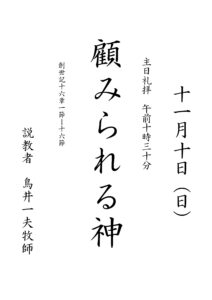 十一月十日（日）
主日礼拝　午前十時三十分
顧みられる神
創世記十六章一節ー十六節
説教者　鳥井一夫牧師